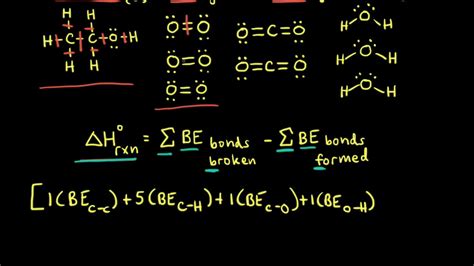 H H
H-C-C-Ö-H
H H
Ö=Ö
Ö=Ö
Ö=Ö
Ö=C=Ö
Ö=C=Ö
H Ö H
H Ö H
H Ö H
ΔH°rxn = Σ BE bonds broken - Σ BE bonds formed
[1(BE C-C) + 5(BE C-H) + 1(BE C-O) + 1(BE O-H)